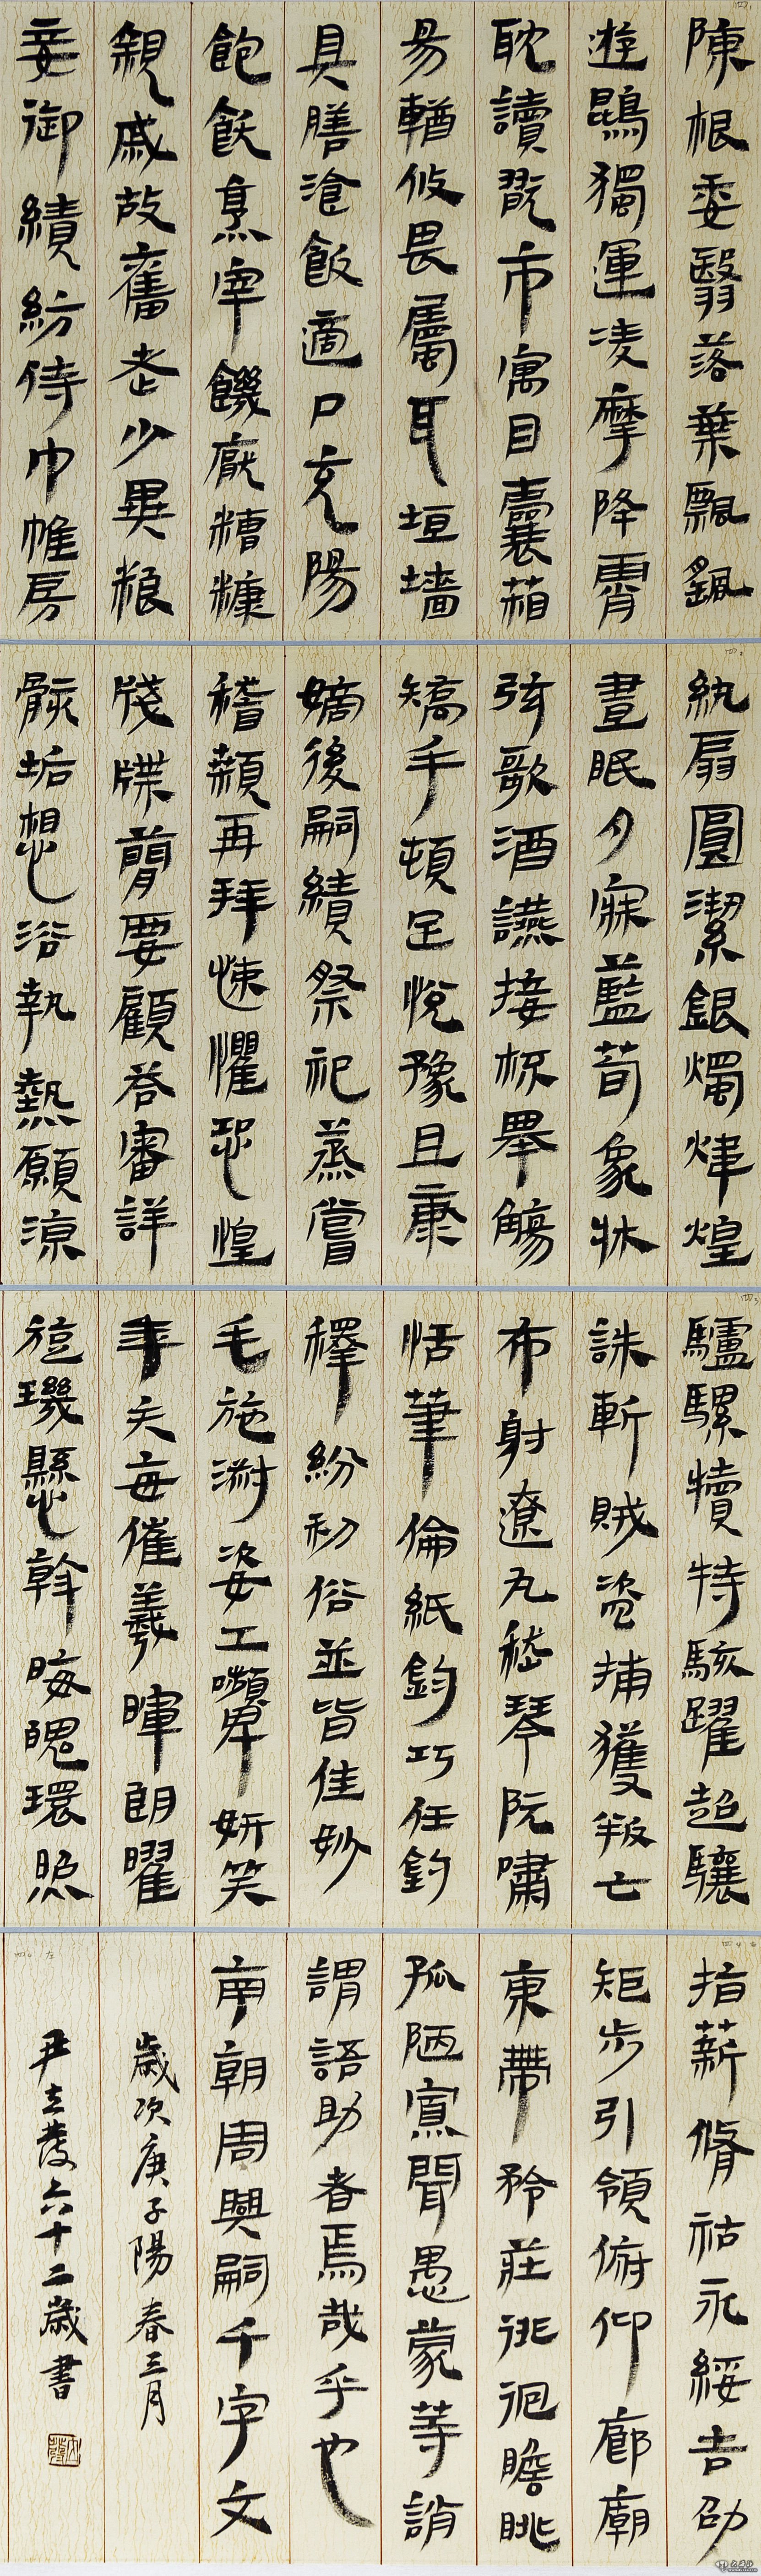 陳根委翳落葉飄飖
遊鵾獨運凌摩降霄
耽讀翫市寓目囊葙
易輶攸畏屬耳垣墻
具膳湌飯適口充腸
飽飫烹宰饑厭糟糠
親戚故舊老少異粮
妾御績紡侍巾帷房
紈扇圓潔銀燭煒煌
晝眠夕寐藍荀象牀
弦歌酒讌接杯舉觴
矯手頓足悅豫且康
嫡後嗣績祭祀蒸嘗
稽顙再拜悚懼恐惶
牋牒簡要顧答審詳
骸垢想浴執熱願涼
驢騾犢特駭躍超驤
誅斬賊盜捕獲叛亡
布射遼丸嵇琴阮嘯
恬筆倫紙鈞巧任釣
釋紛利俗並皆佳妙
毛施淑姿工顰妍笑
年矢每催羲暉朗曜
旋璣懸斡晦魄環照
指薪脩祜永綏吉劭
矩步引領俯仰廊廟
束帶矜莊徘徊瞻眺
孤陋寡聞愚蒙等誚
謂語助者焉哉乎也
南朝周興嗣千字文
歲次庚子陽春三月
尹立發六十二歲書